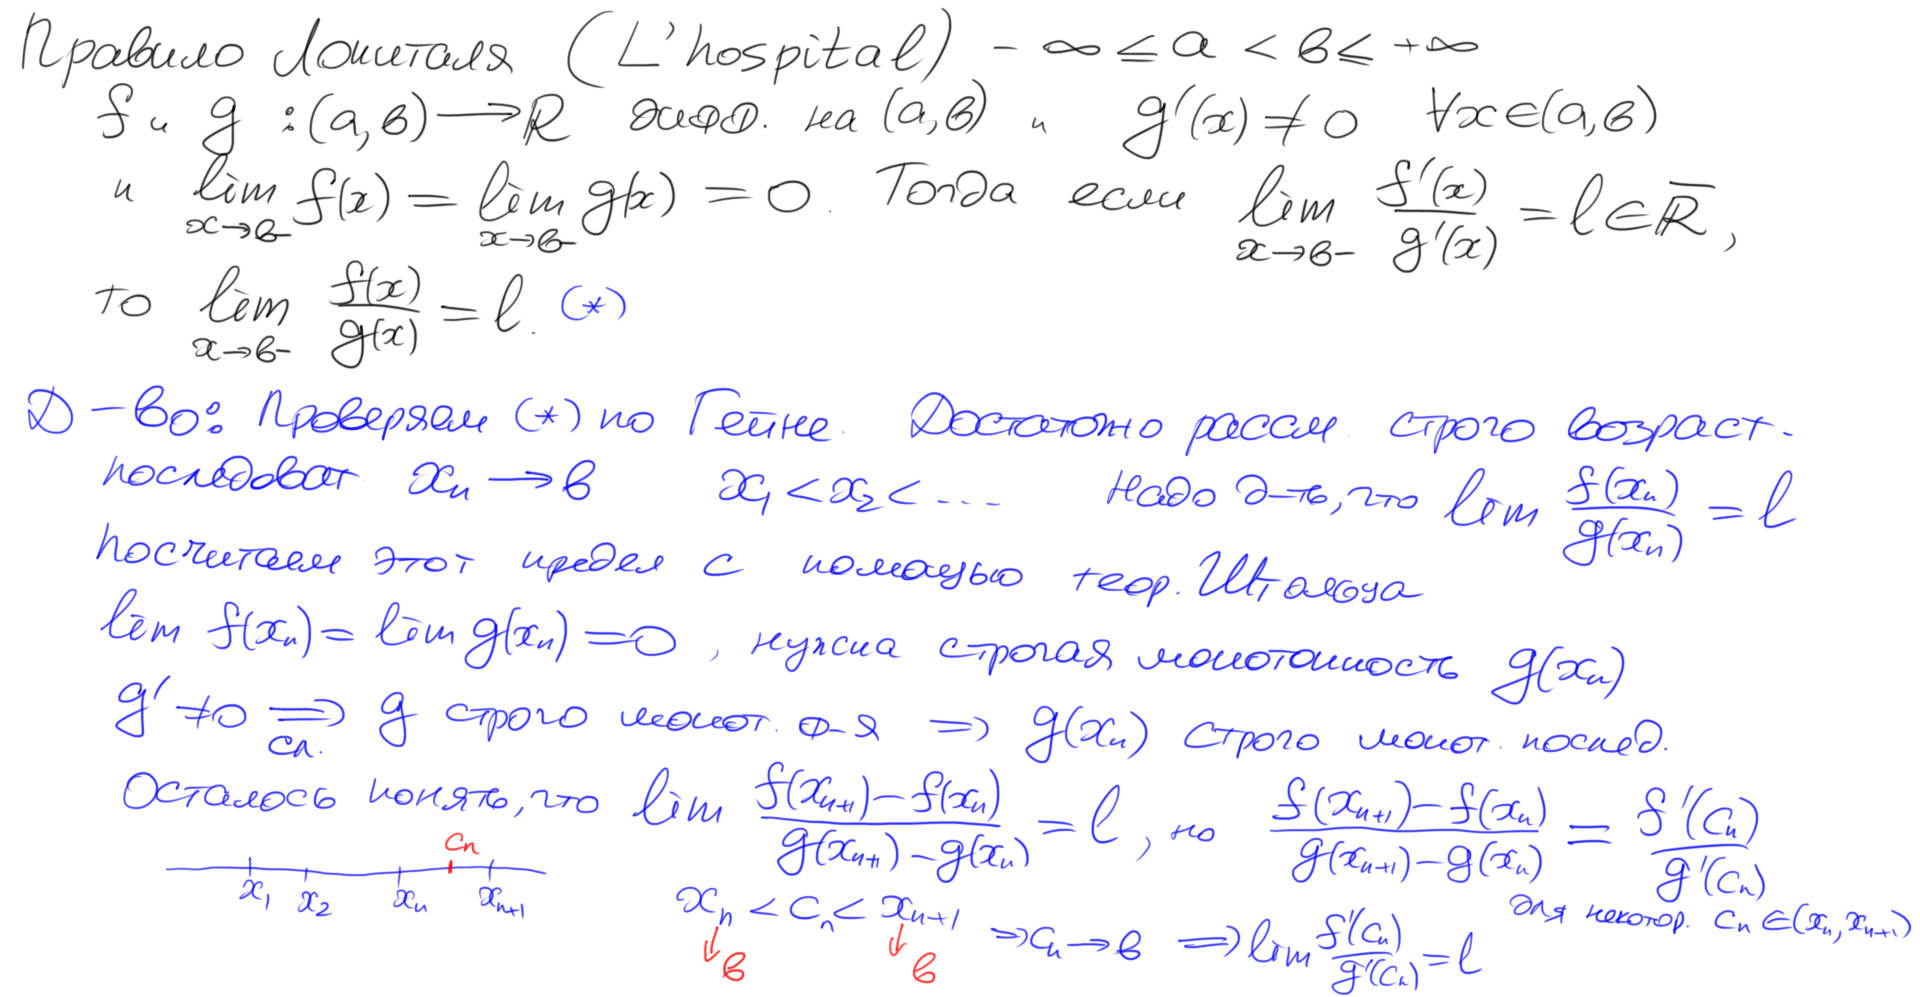 Правило Лопиталя (L'hospital) -∞ ≤ a < b ≤ +∞
f и g : (a, b) → R дифф. на (a, b) и g'(x) ≠ 0 ∀x ∈ (a, b)
и lim_{x→b-} f(x) = lim_{x→b-} g(x) = 0. Тогда если lim_{x→b-} f'(x)/g'(x) = l ∈ R̄,
то lim_{x→b-} f(x)/g(x) = l. (*)
Д-во: Проверяем (*) по Гейне. Достаточно рассм. строго возраст.
последоват x_n → b x_1 < x_2 < ... Надо д-ть, что lim f(x_n)/g(x_n) = l
Посчитаем этот предел с помощью теор. Штольца
lim f(x_n) = lim g(x_n) = 0, нужна строгая монотонность g(x_n)
g' ≠ 0 ⟹ сл. g строго монот. ф-я ⟹ g(x_n) строго монот. послед.
Осталось понять, что lim (f(x_{n+1}) - f(x_n))/(g(x_{n+1}) - g(x_n)) = l, но (f(x_{n+1}) - f(x_n))/(g(x_{n+1}) - g(x_n)) = f'(c_n)/g'(c_n)
для некотор. c_n ∈ (x_n, x_{n+1})
c_n
x_1 x_2 x_n x_{n+1}
x_n < c_n < x_{n+1} ⟹ c_n → b ⟹ lim f'(c_n)/g'(c_n) = l
↓ b ↓ b